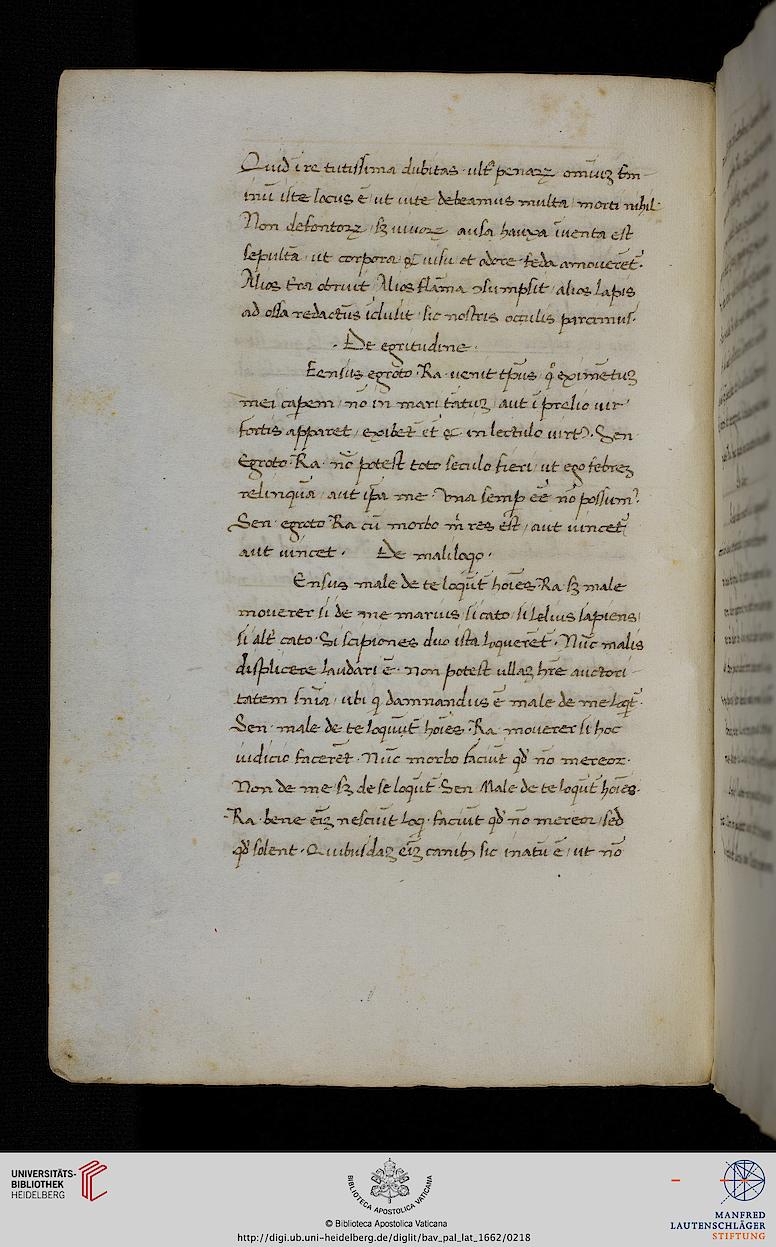 Quid ī re tutissima dubitas · ult̄ penarꝝ om̄iuꝫ t̄m
inū iste locus ē / ut vite debeamus multa / morti nihil
Non defontorꝝ / sꝫ vivorꝝ ausa īventa est
sepultā / ut corpora et visu et odore feda amoverēt̄ ·
Alios t̄ra obruit / Alios flāma ꝯsumpsit / alios lapis
ad ossa redactus īclusit / sic nostris occulis parcimus ·
· De egritudine ·
Eensus egroto · Ra · venit tp̄us / experimētuꝫ
mei capem / nō in mari tātuꝫ / aut ī prelio vir
fortis apparet / exibet̄ et̄ in lectulo virtꝰ · Sen
Egroto · Ra · nō potest toto seculo fieri / ut ego febreꝫ
relinquā / aut ip̄a me · Una semp eē nō possumꝰ ·
Sen · egroto Ra cū morbo m̄ res est / aut vincet̄
aut vincet · De maliloqo ·
Ensus male de te loqūt̄ hoīes · Ra · sꝫ male
moverer si de me marcus / si cato / si lelius sapiens /
si alt̄ cato · Si scipiones duo ista loquerēt̄ · Nūc malis
displicere laudari ē · non potest ullaꝫ hr̄e auctori
tatem sn̄ia / ubi q̄ damnandus ē male de me loqt̄ ·
Sen · male de te loquūt̄ hoīes · Ra · moverer si hoc
iudicio facerēt · Nūc morbo faciūt qđ nō mereor ·
Non de me / sꝫ de se loqūt̄ · Sen Male de te loqūt̄ hoīes ·
Ra · bene eīꝫ nesciūt loq · faciūt qđ nō mereor / sed
qđ solent · Quibusdaꝫ eīꝫ canibꝫ sic inatū ē / ut nō
UNIVERSITÄTS-
BIBLIOTHEK
HEIDELBERG
BIBLIOTECA APOSTOLICA VATICANA
© Biblioteca Apostolica Vaticana
http://digi.ub.uni-heidelberg.de/diglit/bav_pal_lat_1662/0218
MANFRED
LAUTENSCHLÄGER
STIFTUNG